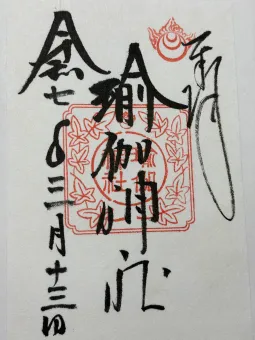 奉拝
瑜伽神社
令七年三月十三日